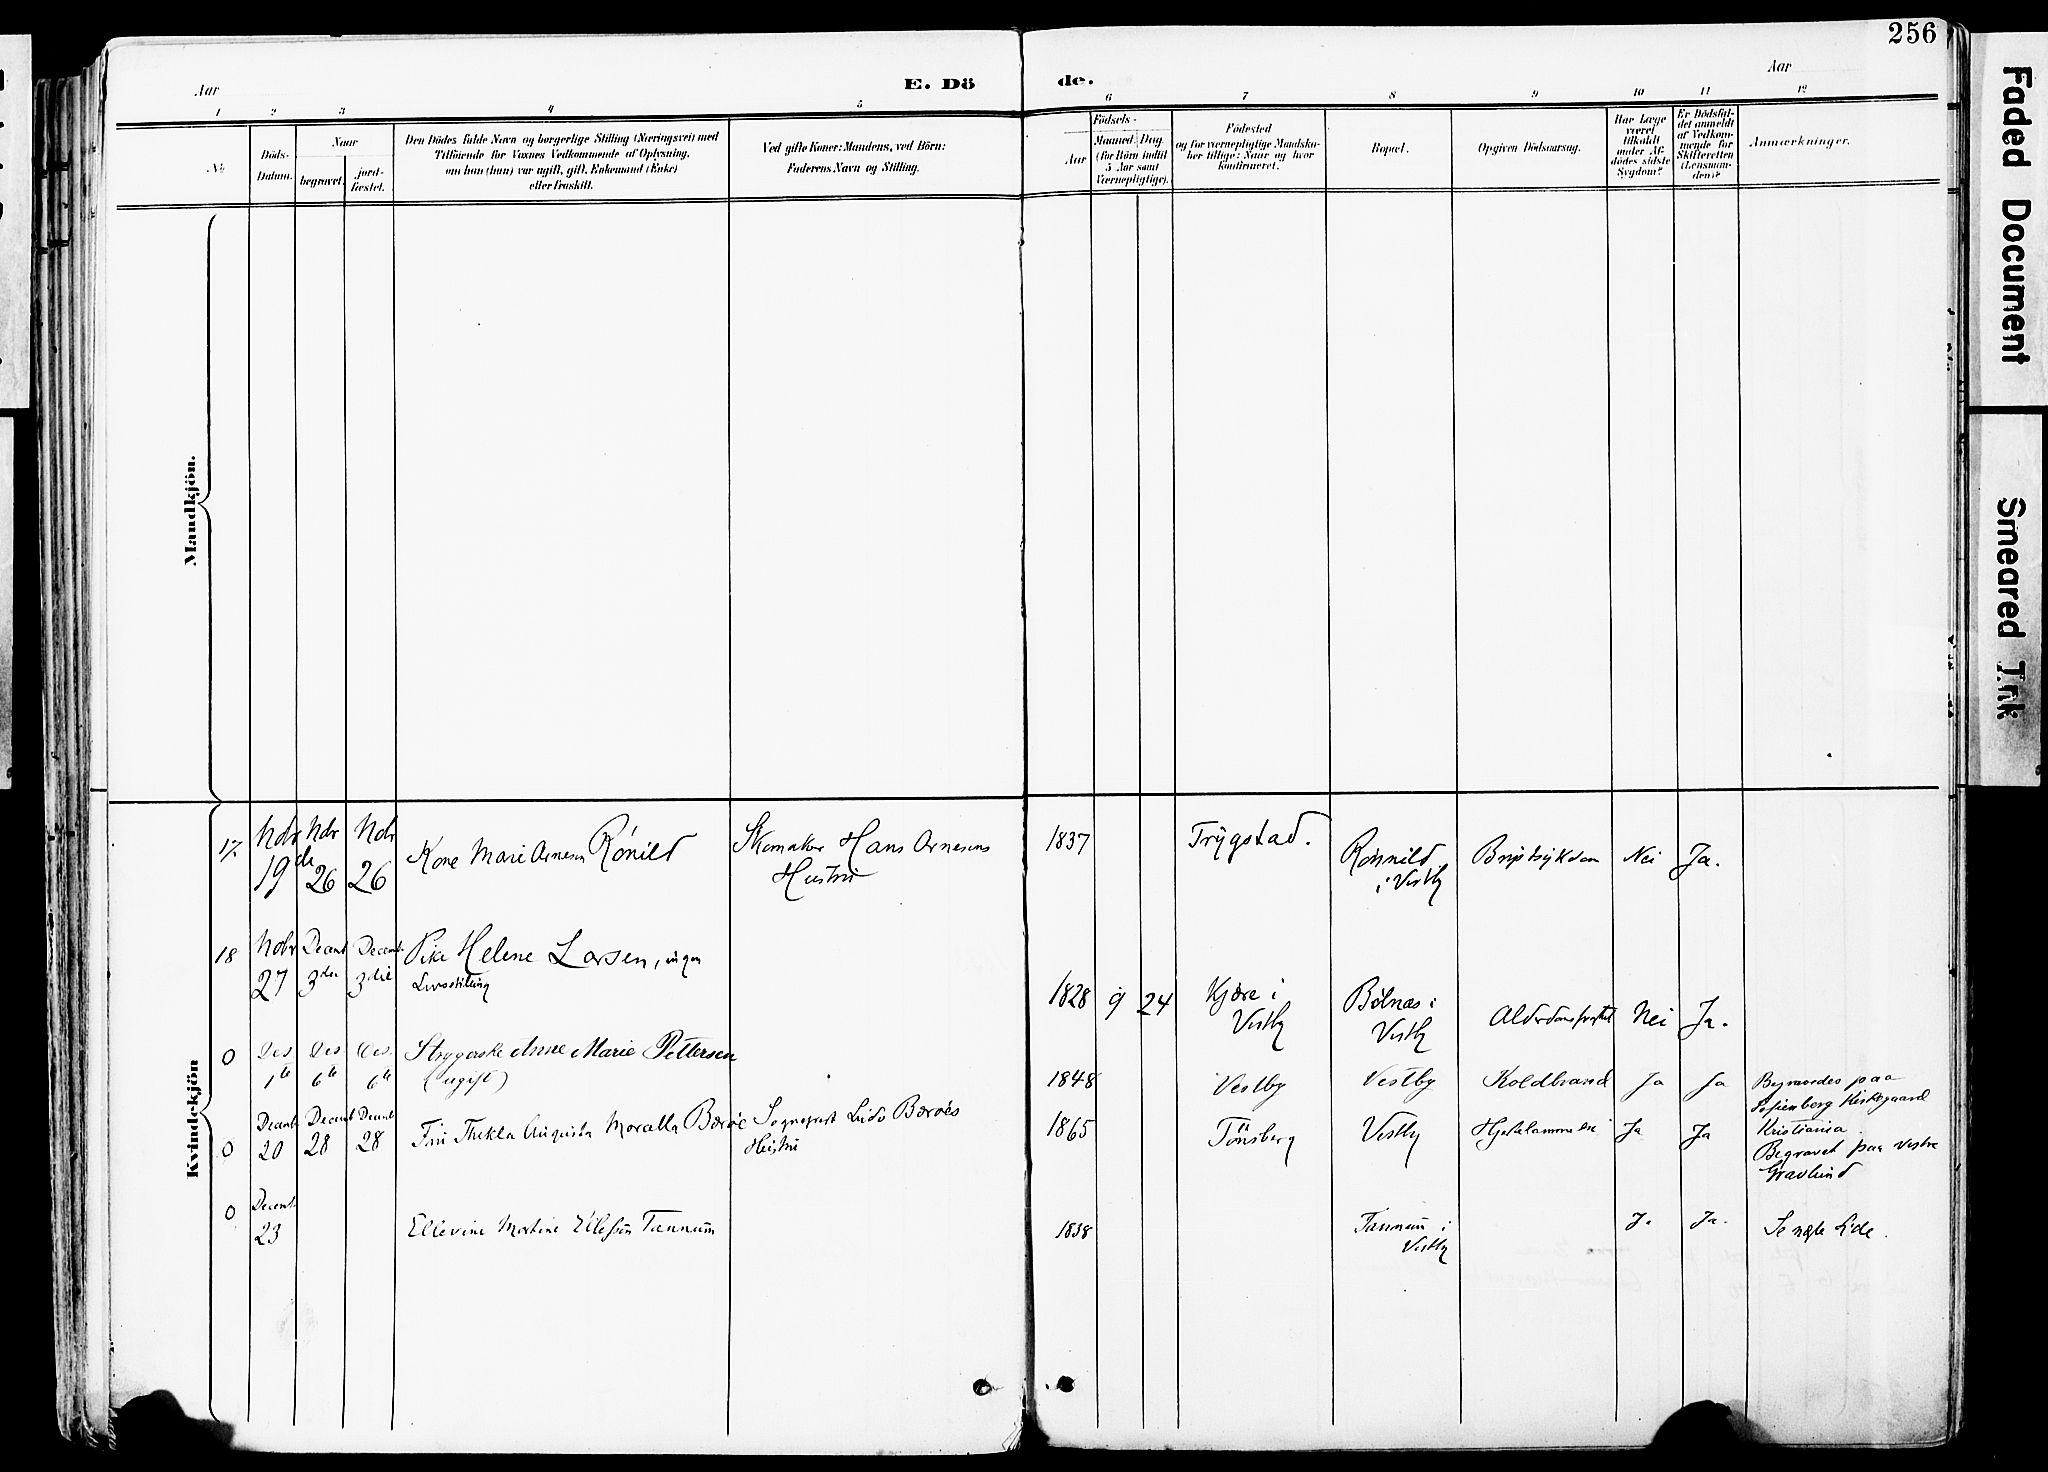 256
Aar
E. Dö
de.
Aar
1 2 3 4 5 6 7 8 9 10 11 12
No
Döds-
Datum.
Naar
begravet.
jord-
fæstet.
Den Dödes fulde Navn og borgerlige Stilling (Næringsvei) med
Tilföiende for Voxnes Vedkommende af Oplysning,
om han (hun) var ugift, gift, Enkemand (Enke)
eller fraskilt.
Ved gifte Koner: Mandens, ved Börn:
Faderens Navn og Stilling.
Födsels-
Aar
Maaned Dag
(for Börn indtil
5 Aar samt
Værnepligtige).
Födested
og for værnepligtige Mandska-
ber tillige: Naar og hvor
konfirmeret.
Bopæl.
Opgiven Dödsaarsag.
Har Læge
været
tilkaldt
under Af-
dödes sidste
Sygdom?
Er Dödsfal-
det anmeldt
af Vedkom-
mende for
Skifteretten
(Lensman-
den)?
Anmærkninger.
Mandkjön.
Kvindekjön
17
Nobr
19de
Nobr
26
Nobr
26
Kone Marie Arnesen Rönild
Skomaker Hans Arnesens
Hustru
1837
Trygstad.
Rönnild
i Vestby
Brystsykdom
Nei
Ja.
18
Nobr
27
Decemb
3die
Decemb
3die
Pike Helene Larsen, ingen
Livsstilling
1828
9
24
Kjære i
Vestby
Bölnæs i
Vestby
Nei
Ja.
0
Des
1te
Des
6te
Des.
6te
Strygerske Anne Marie Pettersen
(ugift)
1848
Vestby
Vestby
Koldbrand
Ja
Ja
Begravedes paa
Sofienberg Kirkegaard
Kristiania.
0
Decemb
20
Decemb
28
Decemb
28
Thekla Augusta Bærøe
Sogneprest Bærøes
Hustru
1865
Tönsberg
Vestby
Ja
Ja
Begravet paa Vestre
Gravlund
0
Decemb.
23
Ellevine Martine Ellefsen Tannum
1838
Tannum i
Vestby
Ja
Ja.
Se næste Side.
Faded Document
Smeared Ink